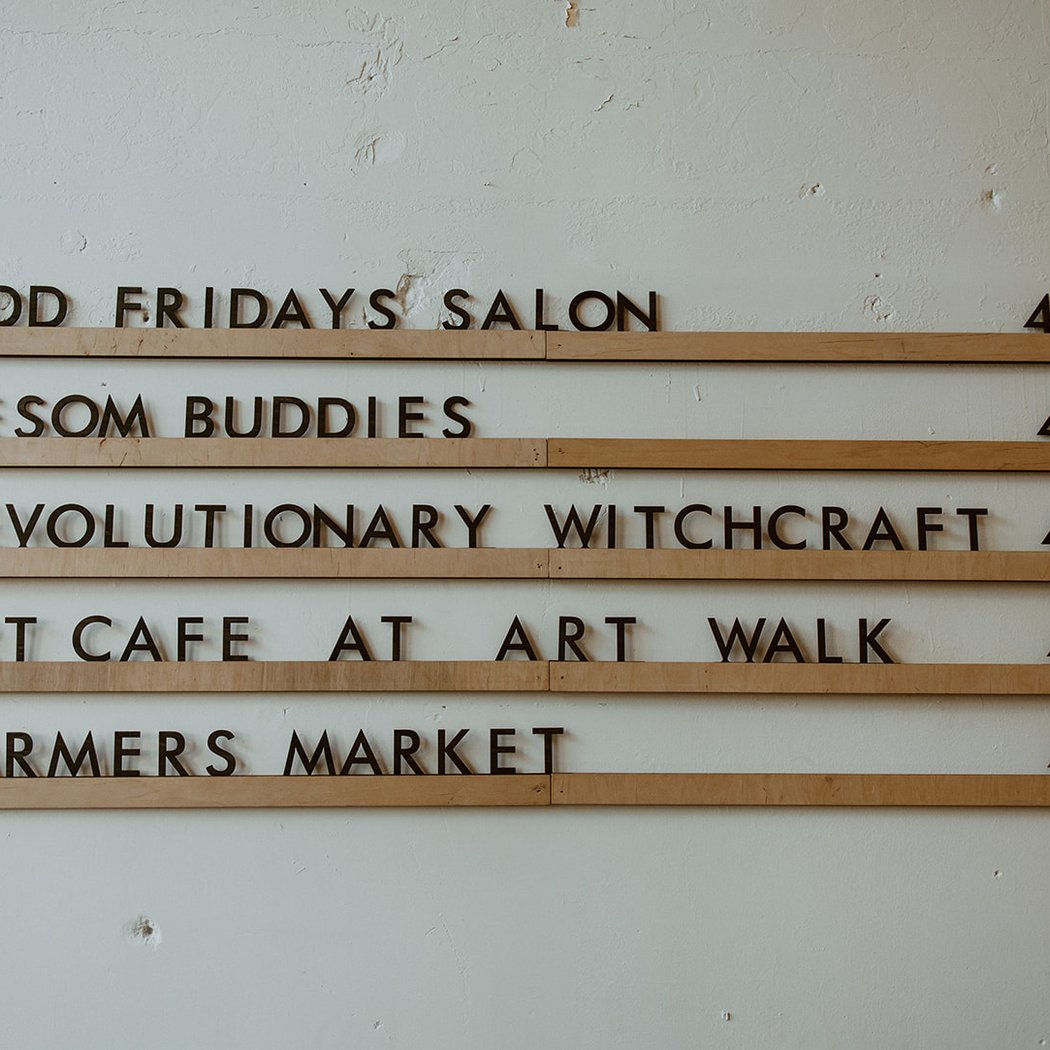 OD FRIDAYS SALON 4
ESOM BUDDIES
EVOLUTIONARY WITCHCRAFT
T CAFE AT ART WALK
RMERS MARKET